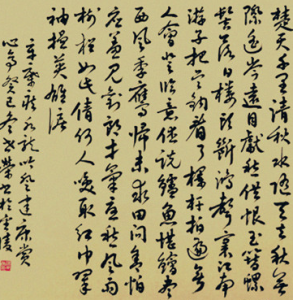 楚天千里清秋水隨天去秋無
際遙岑遠目獻愁供恨玉簪螺
髻落日樓頭斷鴻聲裏江南
游子把吳鉤看了欄杆拍遍無
人會登臨意休說鱸魚堪膾盡
西風季鷹歸未求田問舍怕
應羞見劉郎才氣愁風雨
樹猶如此倩何人喚取紅巾翠
袖搵英雄淚
辛棄疾水龍吟登建康賞
心亭癸巳冬榮書於金陵